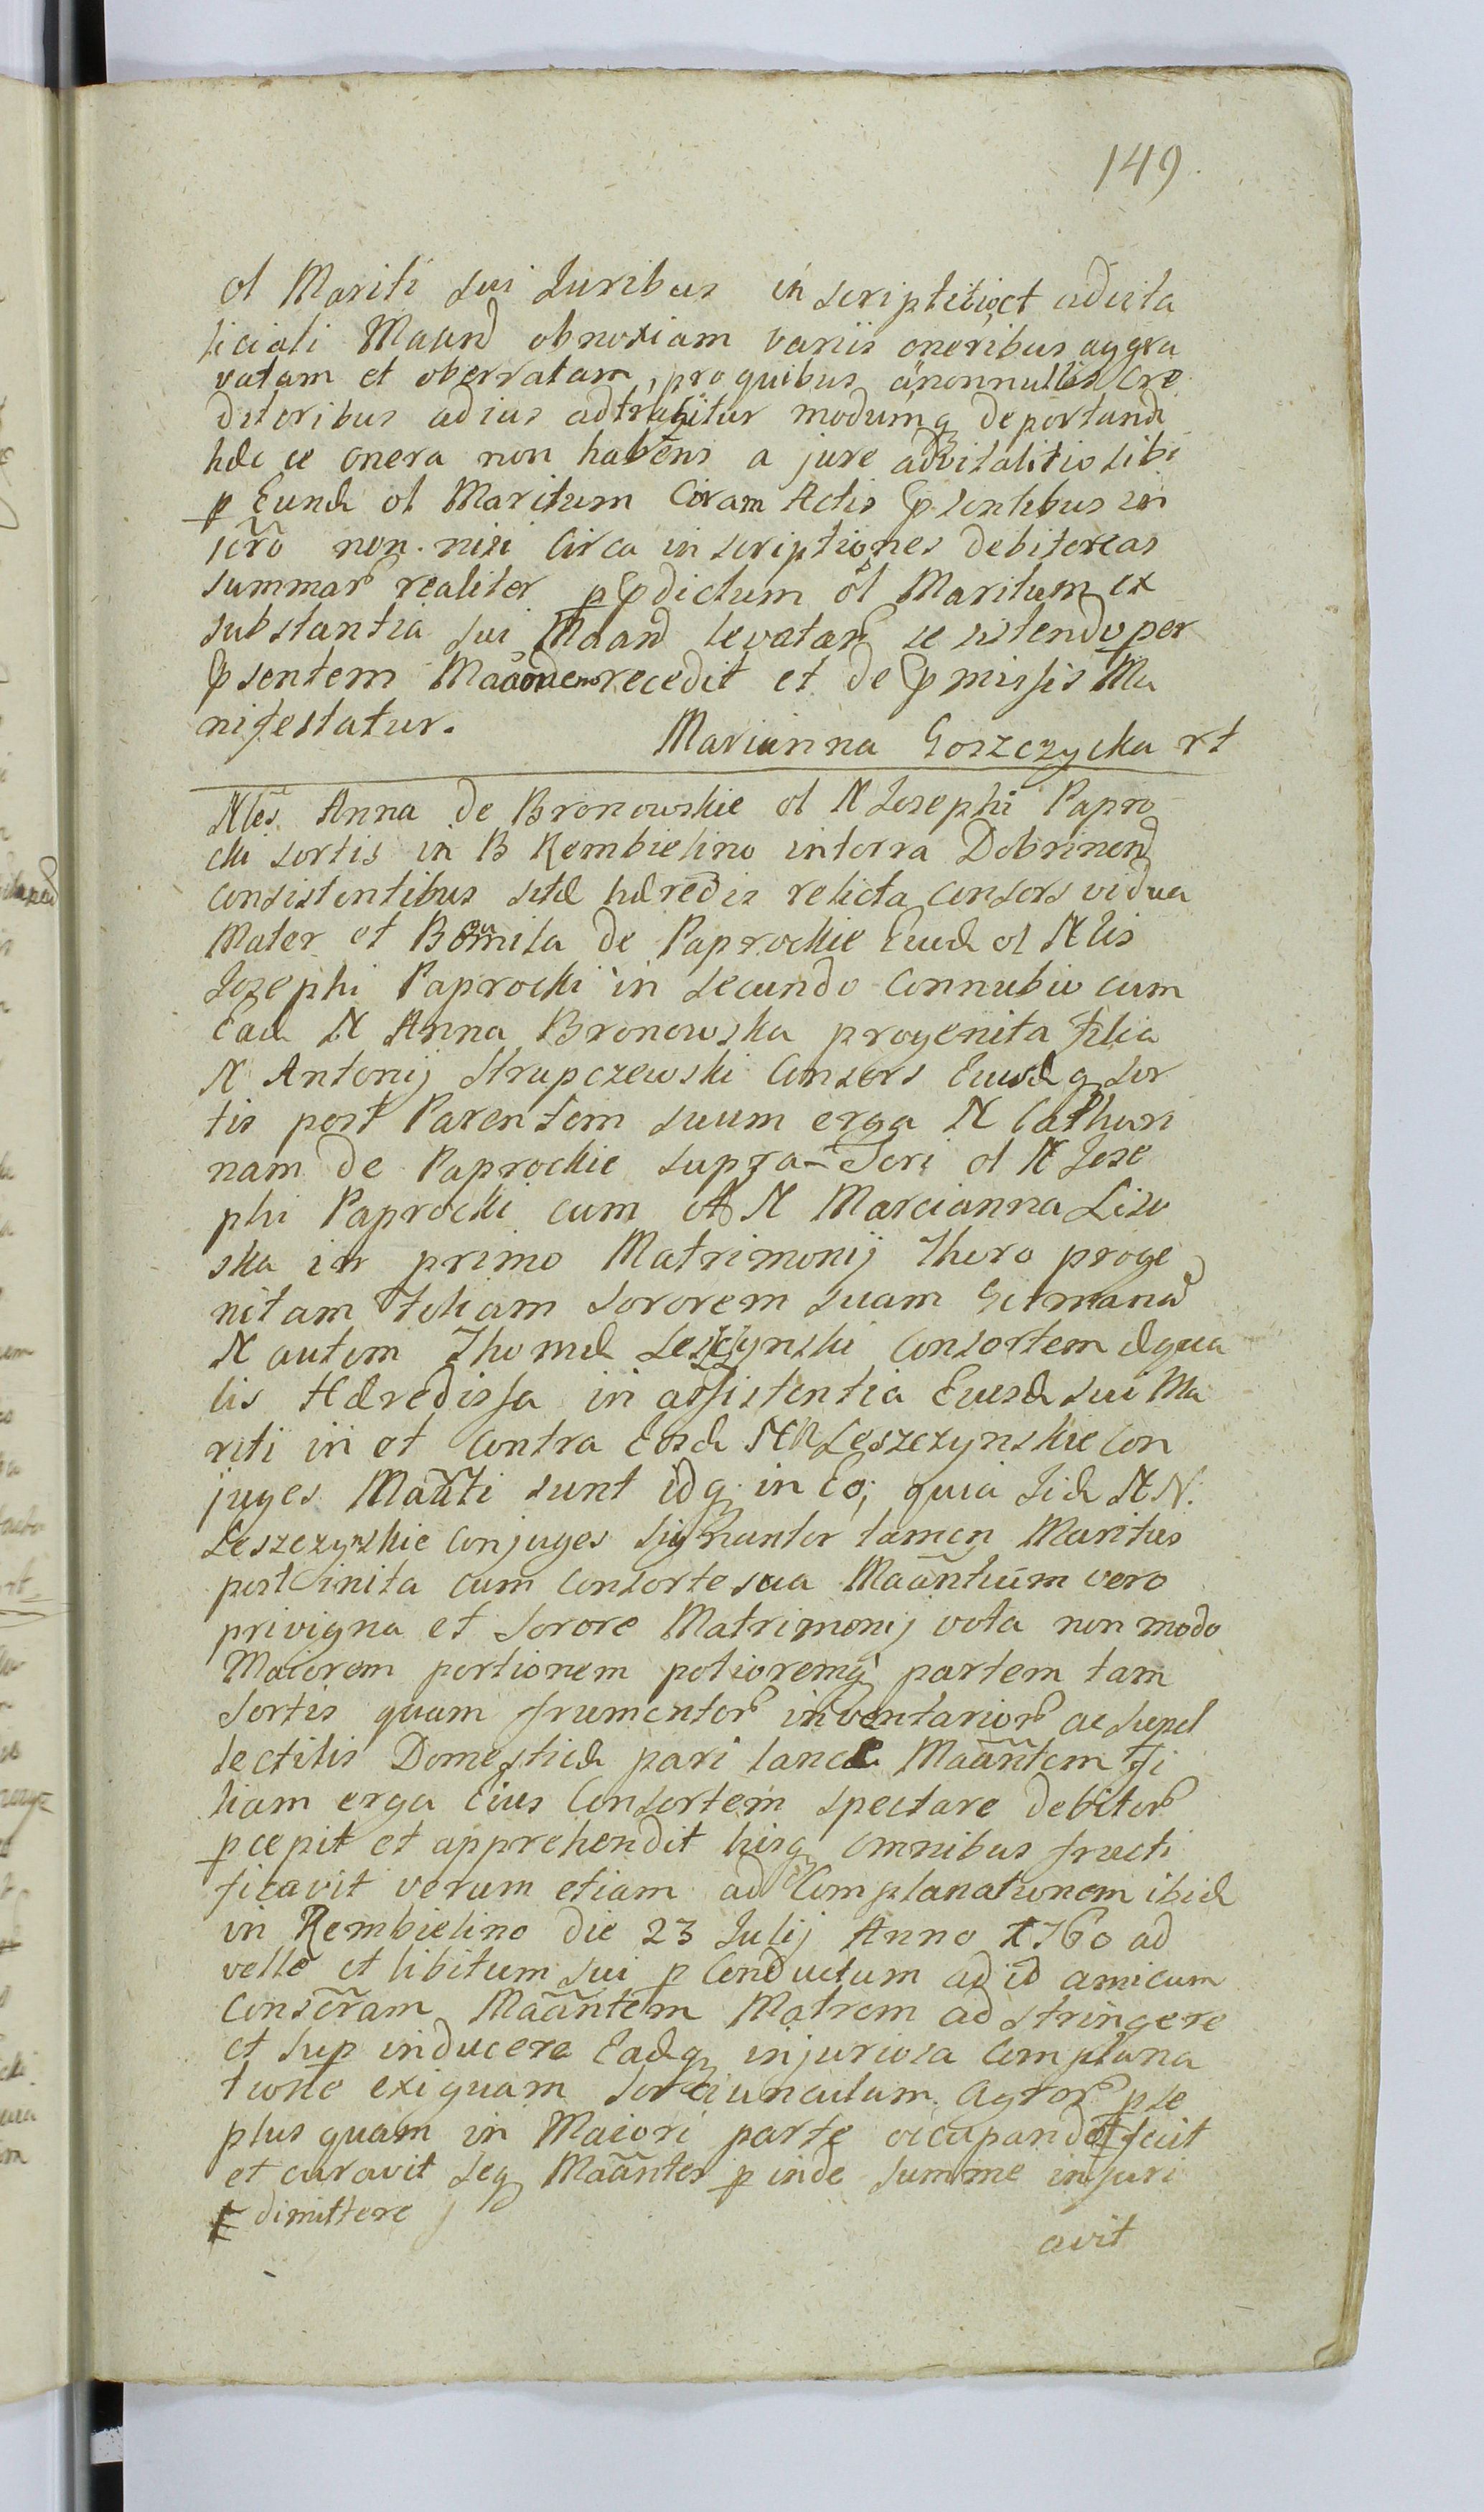 149.
ol Mariti sui Juribus in scriptitio et advita
liciali Maand obnoxiam variis oneribus aggra
vatam et oberratam, pro quibus a nonnullis Cre
ditoribus ad ius adtrahitur modumq deportandi
hæc ce onera non habens a jure advitalitio sibi
p Eund ol Maritum Coram Actis pṡentibus in
scro non nisi circa inscriptiones debitoreas
summar realiter p pdictum ol Maritum ex
substantia sui Maand levatar se sistendo per
psentem recedit et de pmissis Ma
nifestatur.
Marianna Goszczycka rt
Nlės Anna de Bronowskie ol N Josephi Papro
cki sortis in B Rembielino in terra Dobrinend
consistentibus sitæ hæredis relicta consors vidua
Mater et de Paprockie Eiusd ol Nlis
Josephi Paprocki in secundo Connubio cum
Ead N Anna Bronowska progenita filia
N Antonij Strupczewski Consors Eiusdq sor
tis post Parentem suum erga N Cathari
nam de Paprockie supra Fori ol N Jose
phi Paprocki cum N Marcianna Liso
ska in primo Matrimonij thoro proge
nitam filiam sororem suam Germanã
N autem Thomæ Leszczynski Consortem æqua
lis Hæredissa in assistentia Eiusd sui Ma
riti in et contra Eosd NN Leszczynskie Con
juges Maãnti sunt idq in Eo; quia Iid NN.
Leszczynskie Conjuges signanter tamen Maritus
post inita cum Consorte sua Maãntium vero
privigna et sorore Matrimonij vota non modo
Maiorem portionem potioremq partem tam
sortis quam frumentor inventarior ac supel
lectilis Domesticæ pari lance Maãntem fi
liam erga Eius Consortem spectare debitor
pcepit et apprehendit hisq omnibus fructi
ficavit verum etiam ad Complanationem ibid
in Rembielino die 23 Julij Anno 1760 ad
velle et libitum sui p Conductum ad id amicum
conscram Maãntem Matrem ad stringere
et sup inducere Eadq injuriosa Complana
tione exiguam sorciunculam Agror p se
plus quam in Maiori parte occupand fecit
et curavit seq Maãntes p inde summe injuri
dimittere
avit